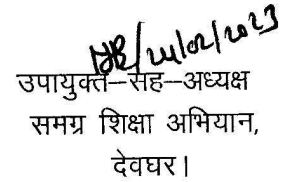 22/02/2023
उपायुक्त–सह–अध्यक्ष
समग्र शिक्षा अभियान,
देवघर।